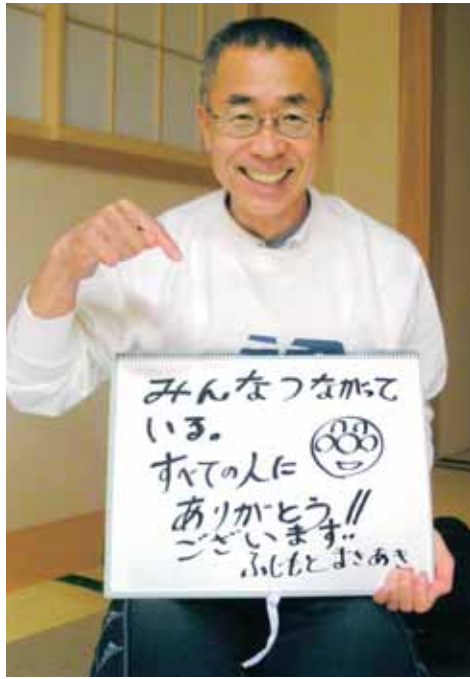 みんなつながって
いる。
すべての人に
ありがとう!!
ございます!!
ふじもと まさあき